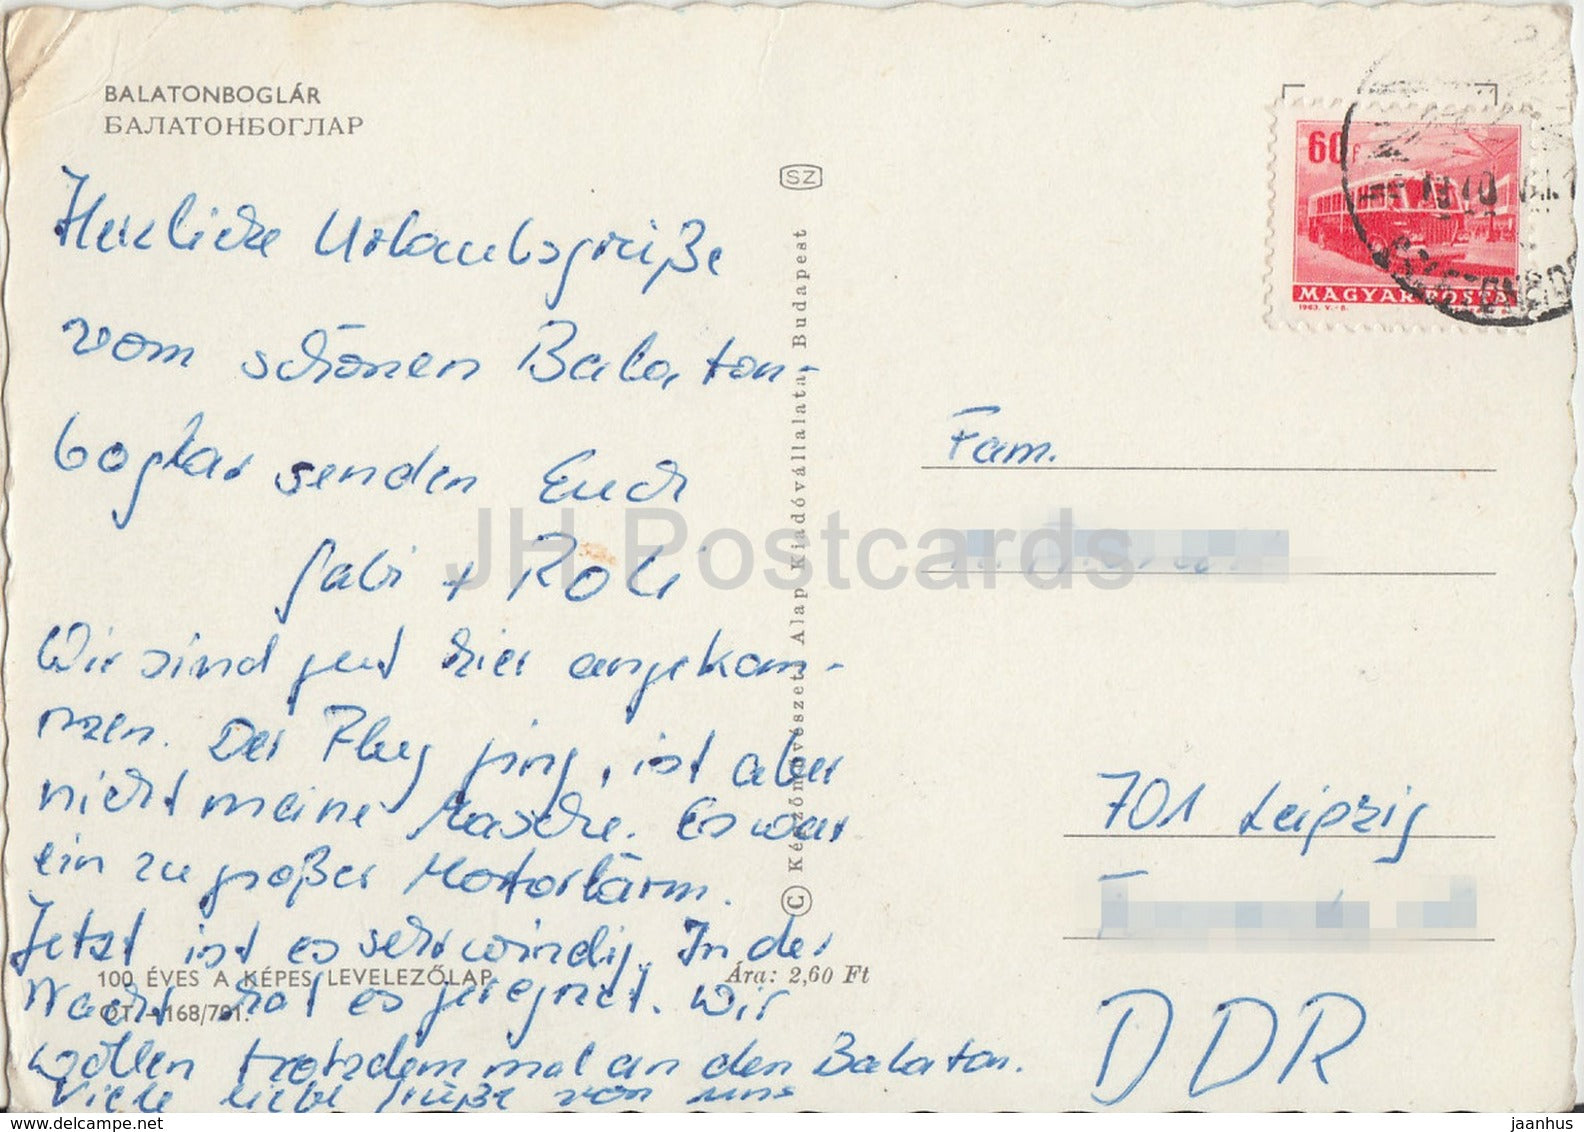 BALATONBOGLÁR
БАЛАТОНБОГЛАР
Herzliche Urlaubsgrüße
vom schönen Balaton-
boglar senden Euch
Gabi + Roli
Wir sind gut hier angekom-
men. Der Flug ging, ist aber
nicht meine Masche. Es war
ein zu großer Motorlärm.
Jetzt ist es sehr windig. In der
Nacht hat es geregnet. Wir
wollen trotzdem mal an den Balaton.
Viele liebe Grüße von uns
100 ÉVES A KÉPES LEVELEZŐLAP
Ára: 2,60 Ft
168/701.
SZ
© Képzőművészeti Alap Kiadóvállalata, Budapest
60 f
MAGYAR POSTA
1963. V.-B.
Fam.
701 Leipzig
DDR
JH Postcards
www.delcampe.net
jaanhus